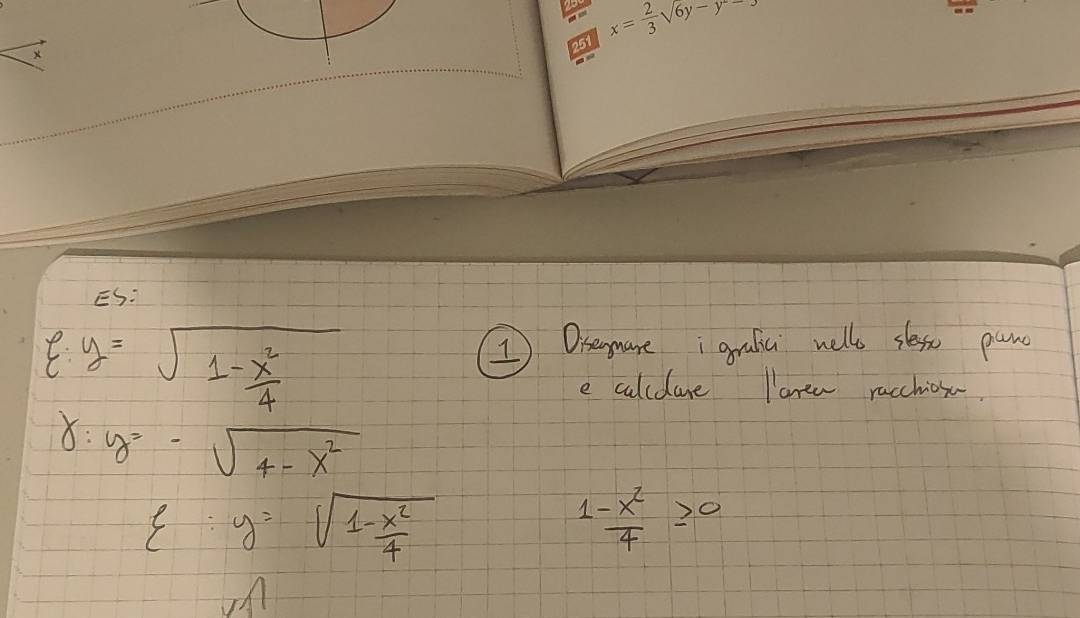 x
251 x = 2/3 √6y − y²
ES:
ξ: y = √(1 - x²/4)
① Disegnare i grafici nello stesso piano
e calcolare l'area racchiosa.
γ: y = - √(4 - x²)
ξ : y = √(1 - x²/4)
1 - x²/4 ≥ 0